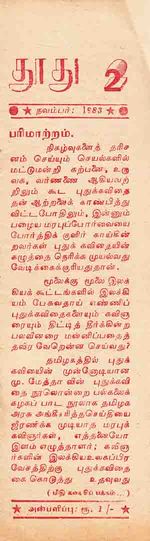 தூது 2
நவம்பர்: 1983
பரிமாற்றம்.
நிகழ்வுகளைத் தரிச
னம் செய்யும் செயல்களில்
மட்டுமன்றி கற்பனை, உரு
வக, வர்ணணை ஆகியவற்
றிலும் கூட புதுக்கவிதை
தன் ஆற்றலைக் காண்பித்து
விட்ட போதிலும், இன்னும்
பழைய மரபுப்போர்வையை
போர்த்திக் குளிர் காய்கின்
றவர்கள் புதுக் கவிதையின்
கழுத்தை நெரிக்க முயல்வது
வேடிக்கைக்குரியதுதான்.
மூலைக்கு மூலை இலக்
கியக் கூட்டங்களில் இலக்கி
யம் பேசுவதாய் எண்ணிப்
புதுக்கவிதைகளையும் கவிஞ
ரையும் திட்டித் தீர்க்கின்ற
பலவீனரை மன்னிப்பதைத்
தவிர வேறென்ன செய்வது?
தமிழகத்தில் புதுக்
கவிதையின் முன்னோடியான
மு. மேத்தாவின் புதுக்கவி
தை நூலொன்றை பல்கலைக்
கழகப் பாட நூலாக தமிழக
அரசு அங்கீகரித்தசெய்தியை
ஜீரணிக்க முடியாத மரபுக்
கவிஞர்கள், எத்தனையோ
இளம் எழுத்தாளர்; கவிஞ
ர்களின் இலக்கியஉலகப்பிர
வேசத்திற்கு புதுக்கவிதை
கை கொடுத்து உதவுவது
(மீதி கடைசிப் பக்கம்...)
அன்பளிப்பு: ரூ. 1/-